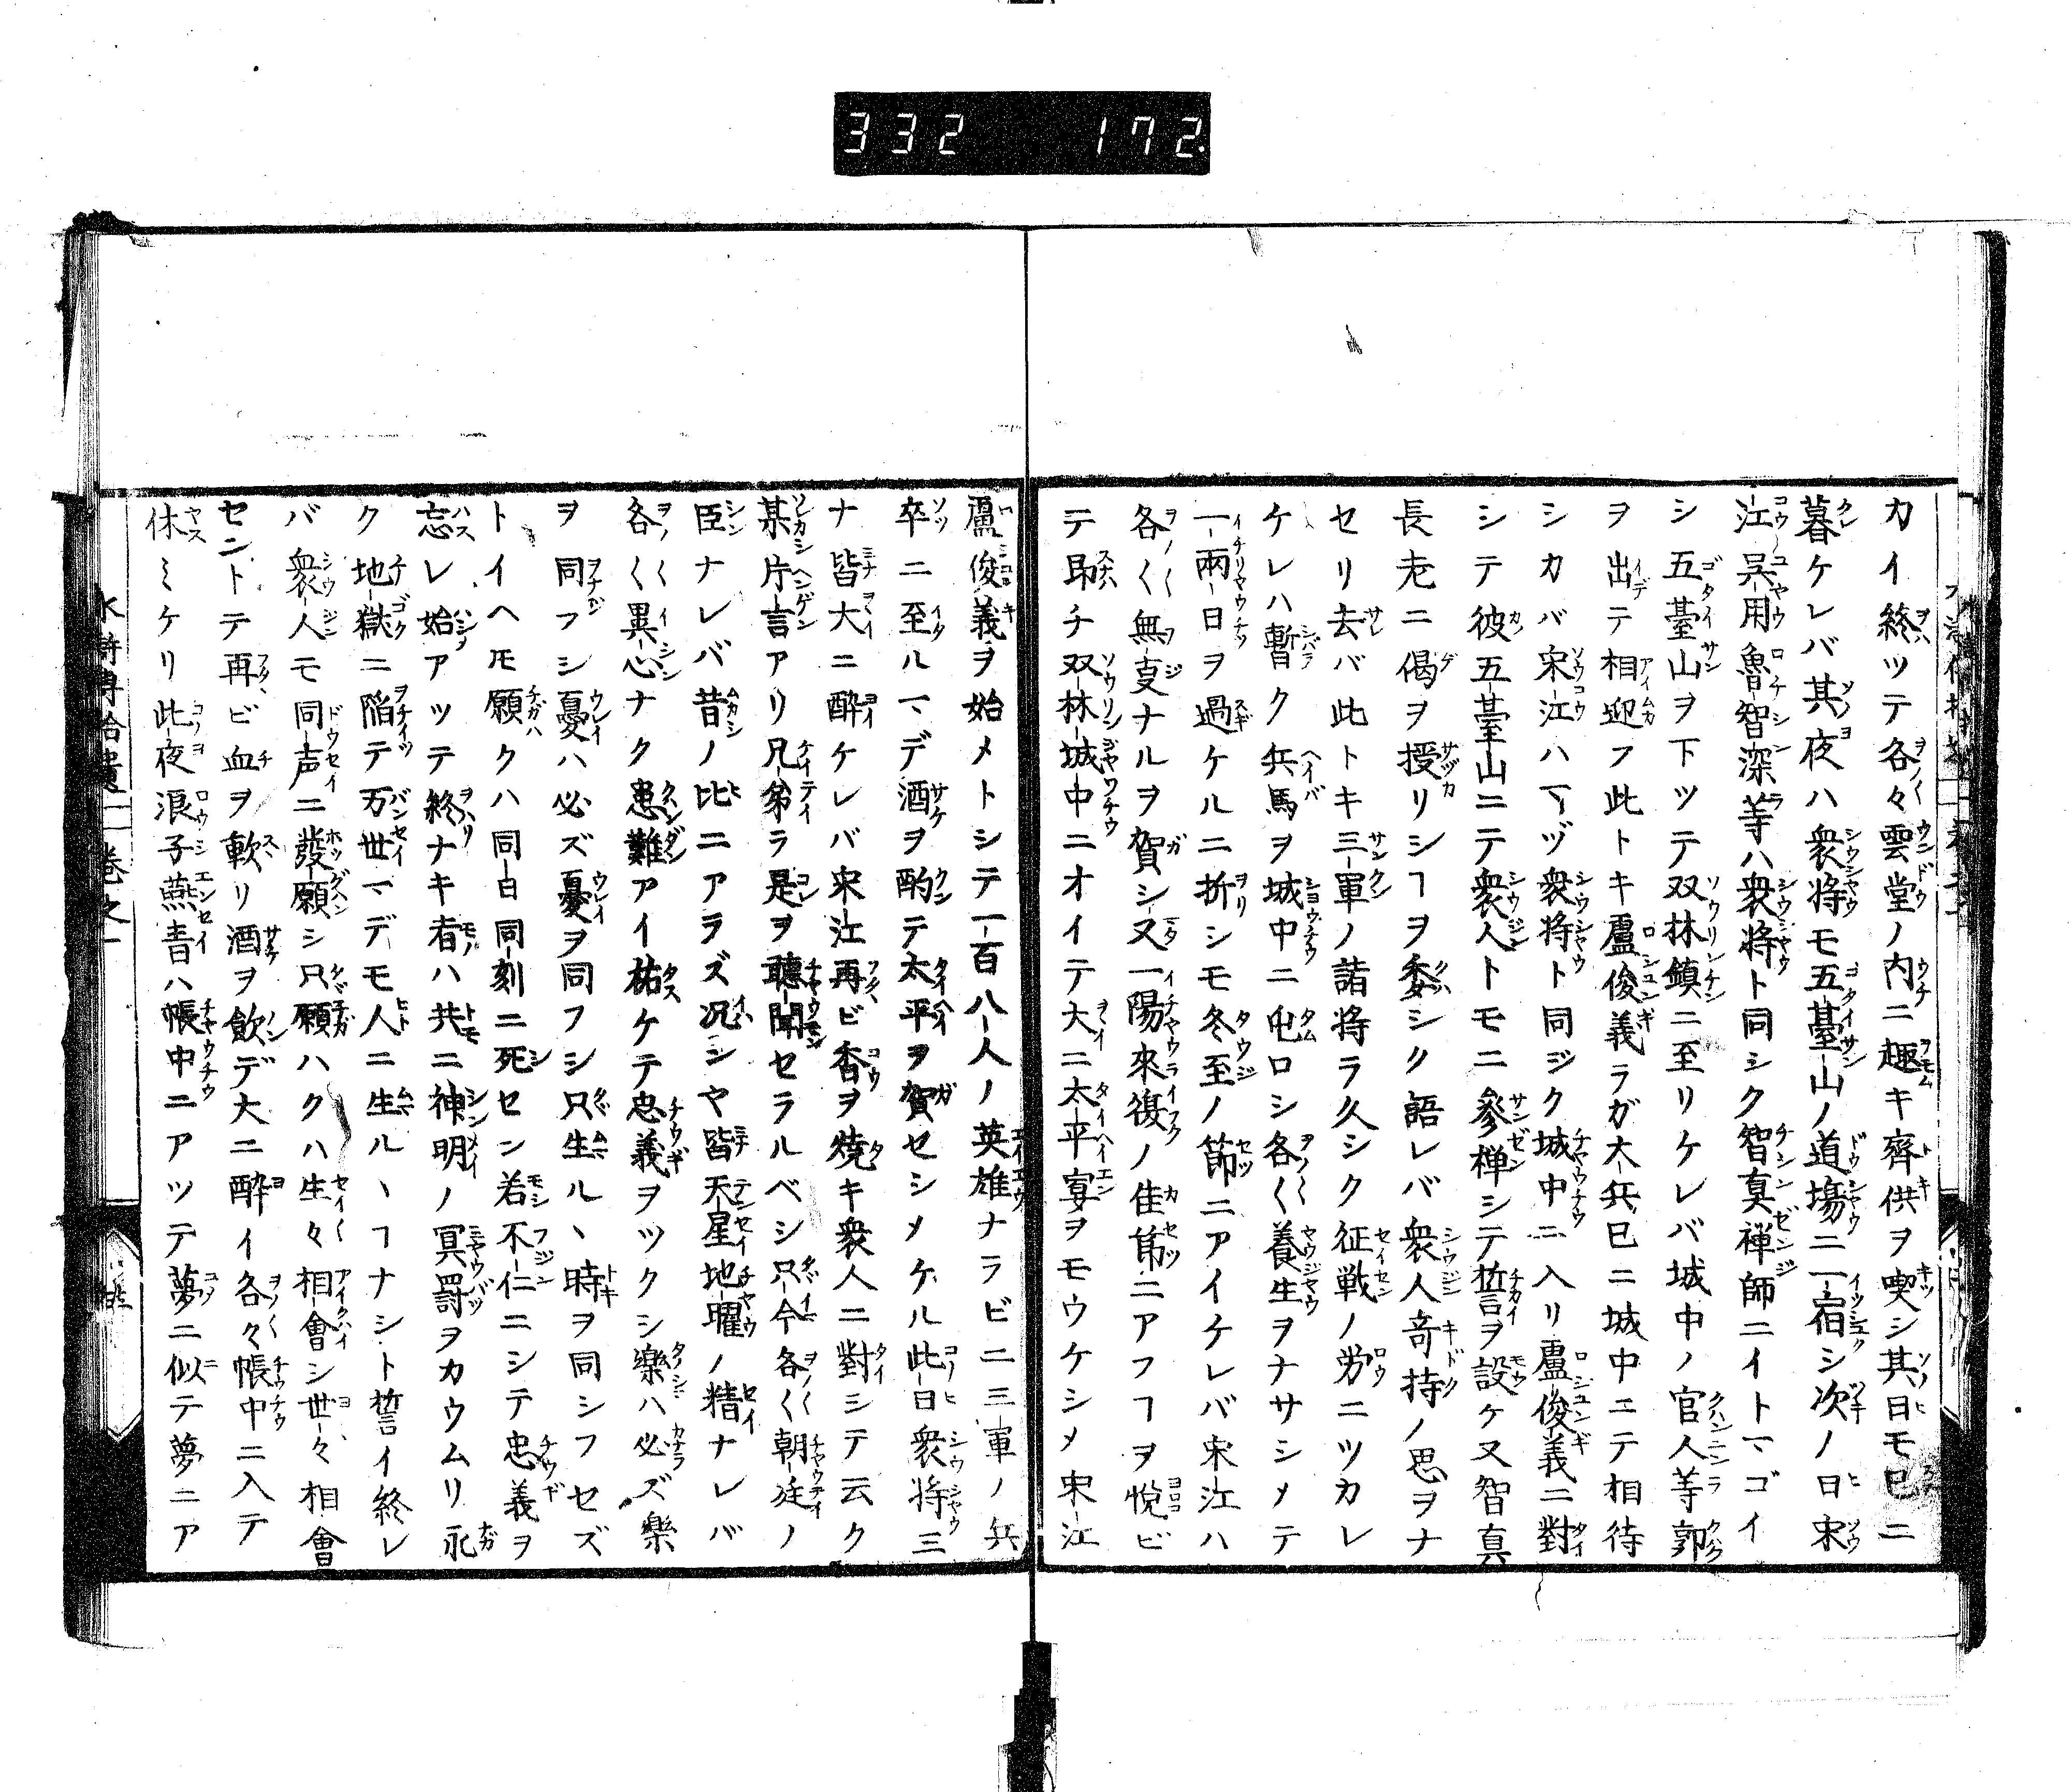 332 172
カイ終ツテ各々雲堂ノ内ニ趣キ齊供ヲ喫シ其日モ已ニ
暮ケレバ其夜ハ衆将モ五臺山ノ道場ニ一宿シ次ノ日宋
江呉用魯智深等ハ衆将ト同シク智真禅師ニイトマゴイ
シ五臺山ヲ下ツテ双林鎮ニ至リケレバ城中ノ官人等郭
ヲ出テ相迎フ此トキ盧俊義ラガ大兵已ニ城中ニテ相待
シカバ宋江ハマヅ衆将ト同ジク城中ニ入リ盧俊義ニ對
シテ彼五臺山ニテ衆人トモニ參禅シテ誓ヲ設ケ又智真
長老ニ偈ヲ授リシヿヲ委シク語レバ衆人竒持ノ思ヲナ
セリ去バ此トキ三軍ノ諸将ラ久シク征戦ノ労ニツカレ
ケレハ暫ク兵馬ヲ城中ニ屯ロシ各〱養生ヲナサシメテ
一兩日ヲ過ケルニ折シモ冬至ノ節ニアイケレバ宋江ハ
各〱無夏ナルヲ賀シ又一陽來復ノ佳節ニアフヿヲ悦ビ
テ即チ双林城中ニオイテ大ニ太平宴ヲモウケシメ宋江
盧俊義ヲ始メトシテ一百八人ノ英雄ナラビニ三軍ノ兵
卒ニ至ルマデ酒ヲ酌テ太平ヲ賀セシメケル此日衆将三
ナ皆大ニ酔ケレバ宋江再ビ香ヲ焼キ衆人ニ對シテ云ク
某片言アリ兄弟ラ是ヲ聽聞セラルベシ只今各〱朝廷ノ
臣ナレバ昔ノ比ニアラズ况シヤ皆天星地曜ノ精ナレバ
各〱異心ナク患難アイ祐ケテ忠義ヲツクシ樂ハ必ズ樂
ヲ同フシ憂ハ必ズ憂ヲ同フシ只生ルヽ時ヲ同シフセズ
トイヘ𪜈願クハ同日同刻ニ死セン若不仁ニシテ忠義ヲ
忘レ始アツテ終ナキ者ハ共ニ神明ノ冥罸ヲカウムリ永
ク地獄ニ陥テ万世マデモ人ニ生ルヽヿナシト誓イ終レ
バ衆人モ同声ニ發願シ只願ハクハ生々相會シ世々相會
セントテ再ビ血ヲ軟リ酒ヲ飲デ大ニ酔イ各々帳中ニ入テ
休ミケリ此夜浪子燕青ハ帳中ニアツテ夢ニ似テ夢ニア
水滸傳拾遺 卷之一